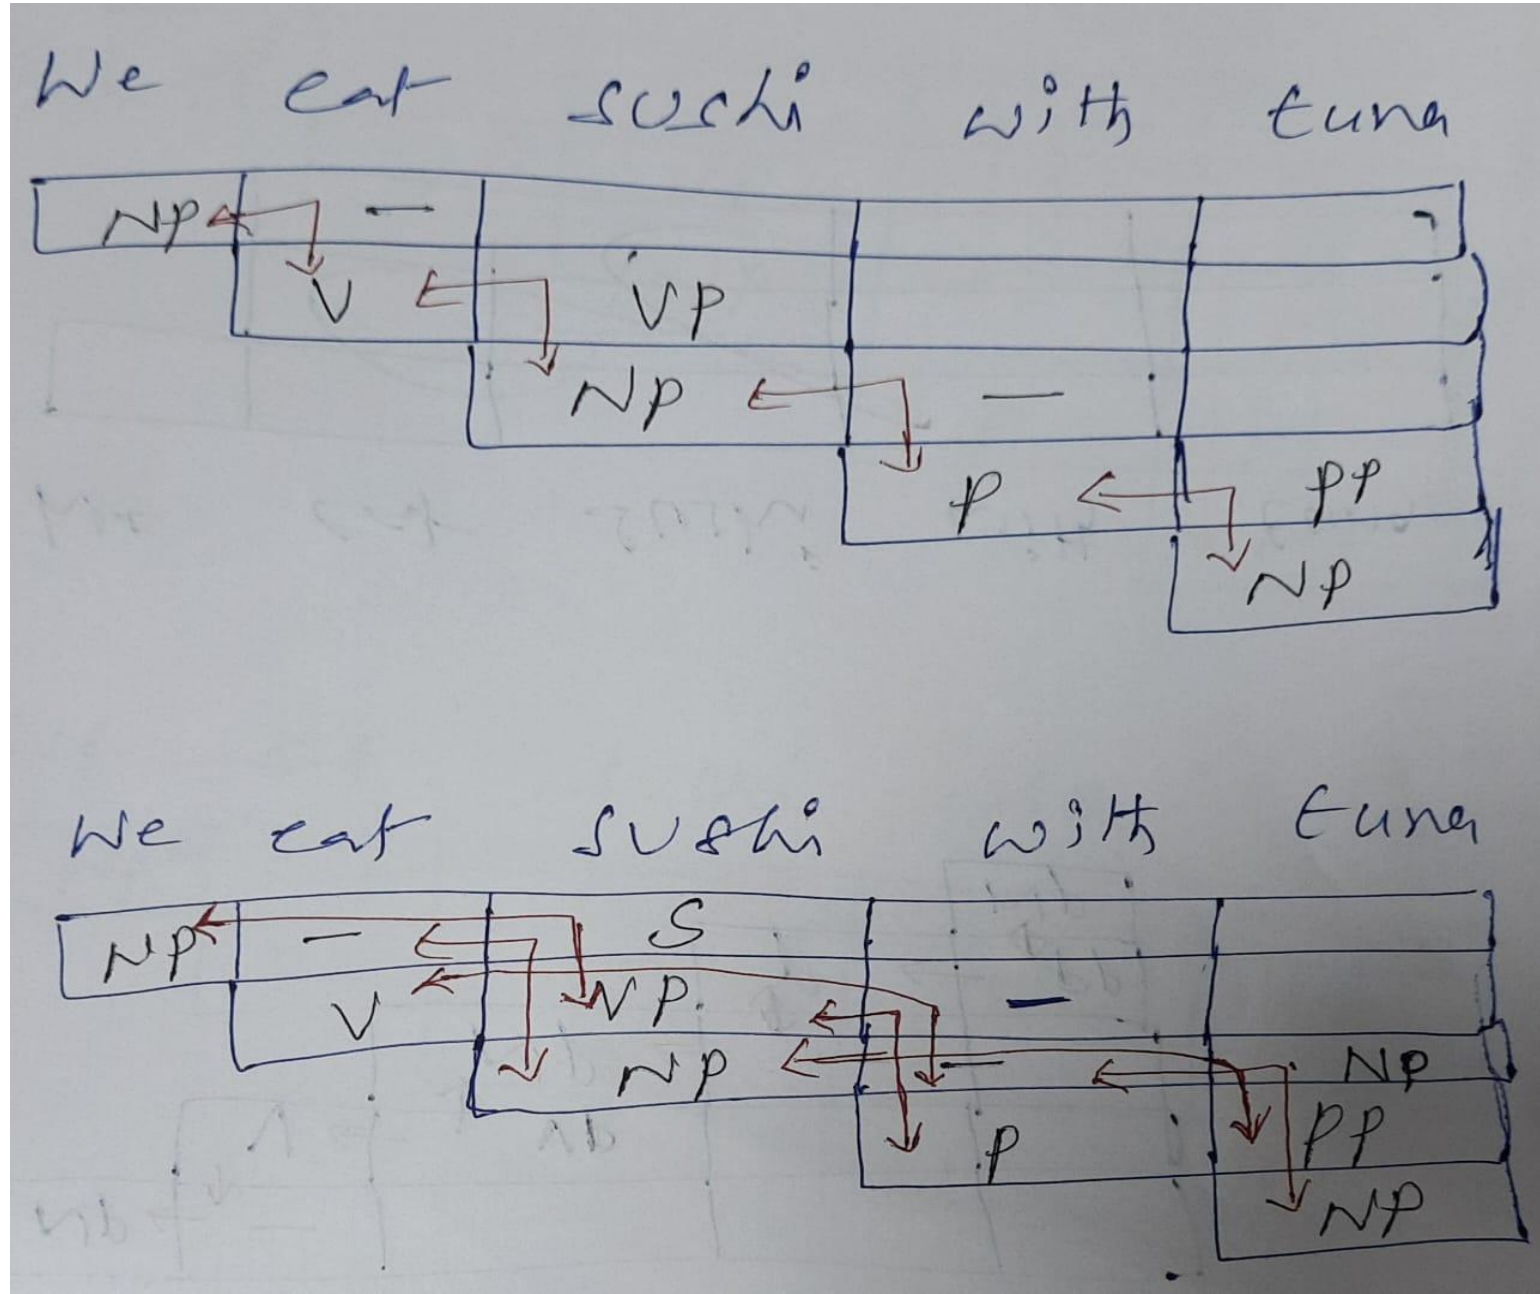 We eat sushi with tuna
NP —
V VP
NP —
P PP
NP
We eat sushi with tuna
NP — S
V NP —
NP — NP
P PP
NP